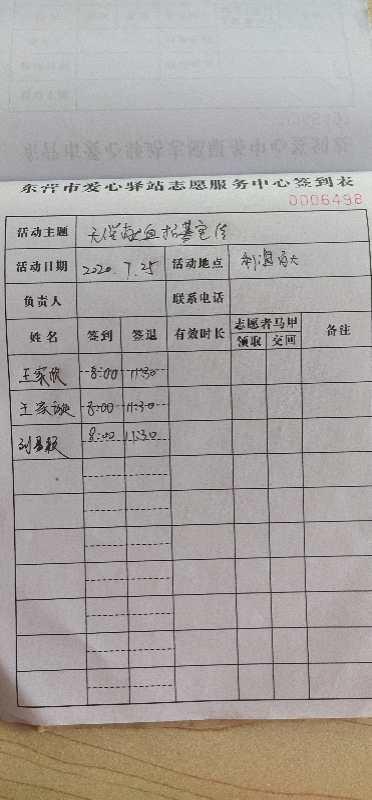 东营市爱心驿站志愿服务中心签到表
0006498
活动主题 无偿献血招募宣传
活动日期 2020.7.25 活动地点
负责人 联系电话
姓名 签到 签退 有效时长 志愿者马甲 备注
领取 交回
王家欣 8:00 11:30
王家璇 8:00 11:30
8:00 11:30